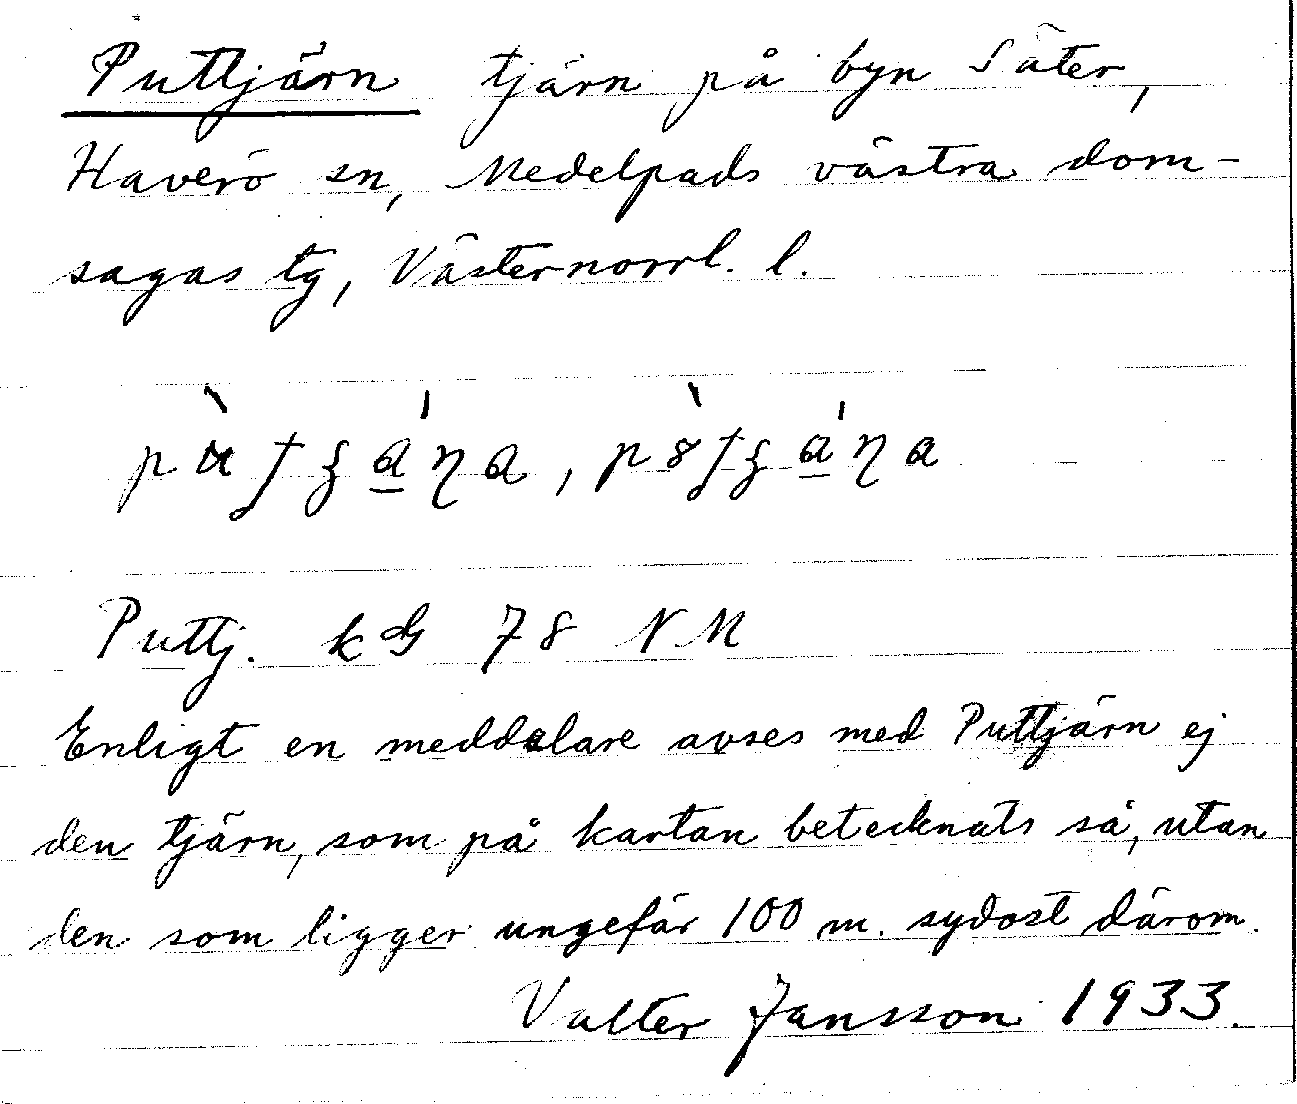 Puttjärn tjärn på byn Säter,
Haverö sn, Medelpads västra dom-
sagas tg, Västernorrl. l.
Puttj. kbl 78 NM
Enligt en meddelare avses med Puttjärn ej
den tjärn, som på kartan betecknats så, utan
den som ligger ungefär 100 m. sydost därom.
Valter Jansson 1933.